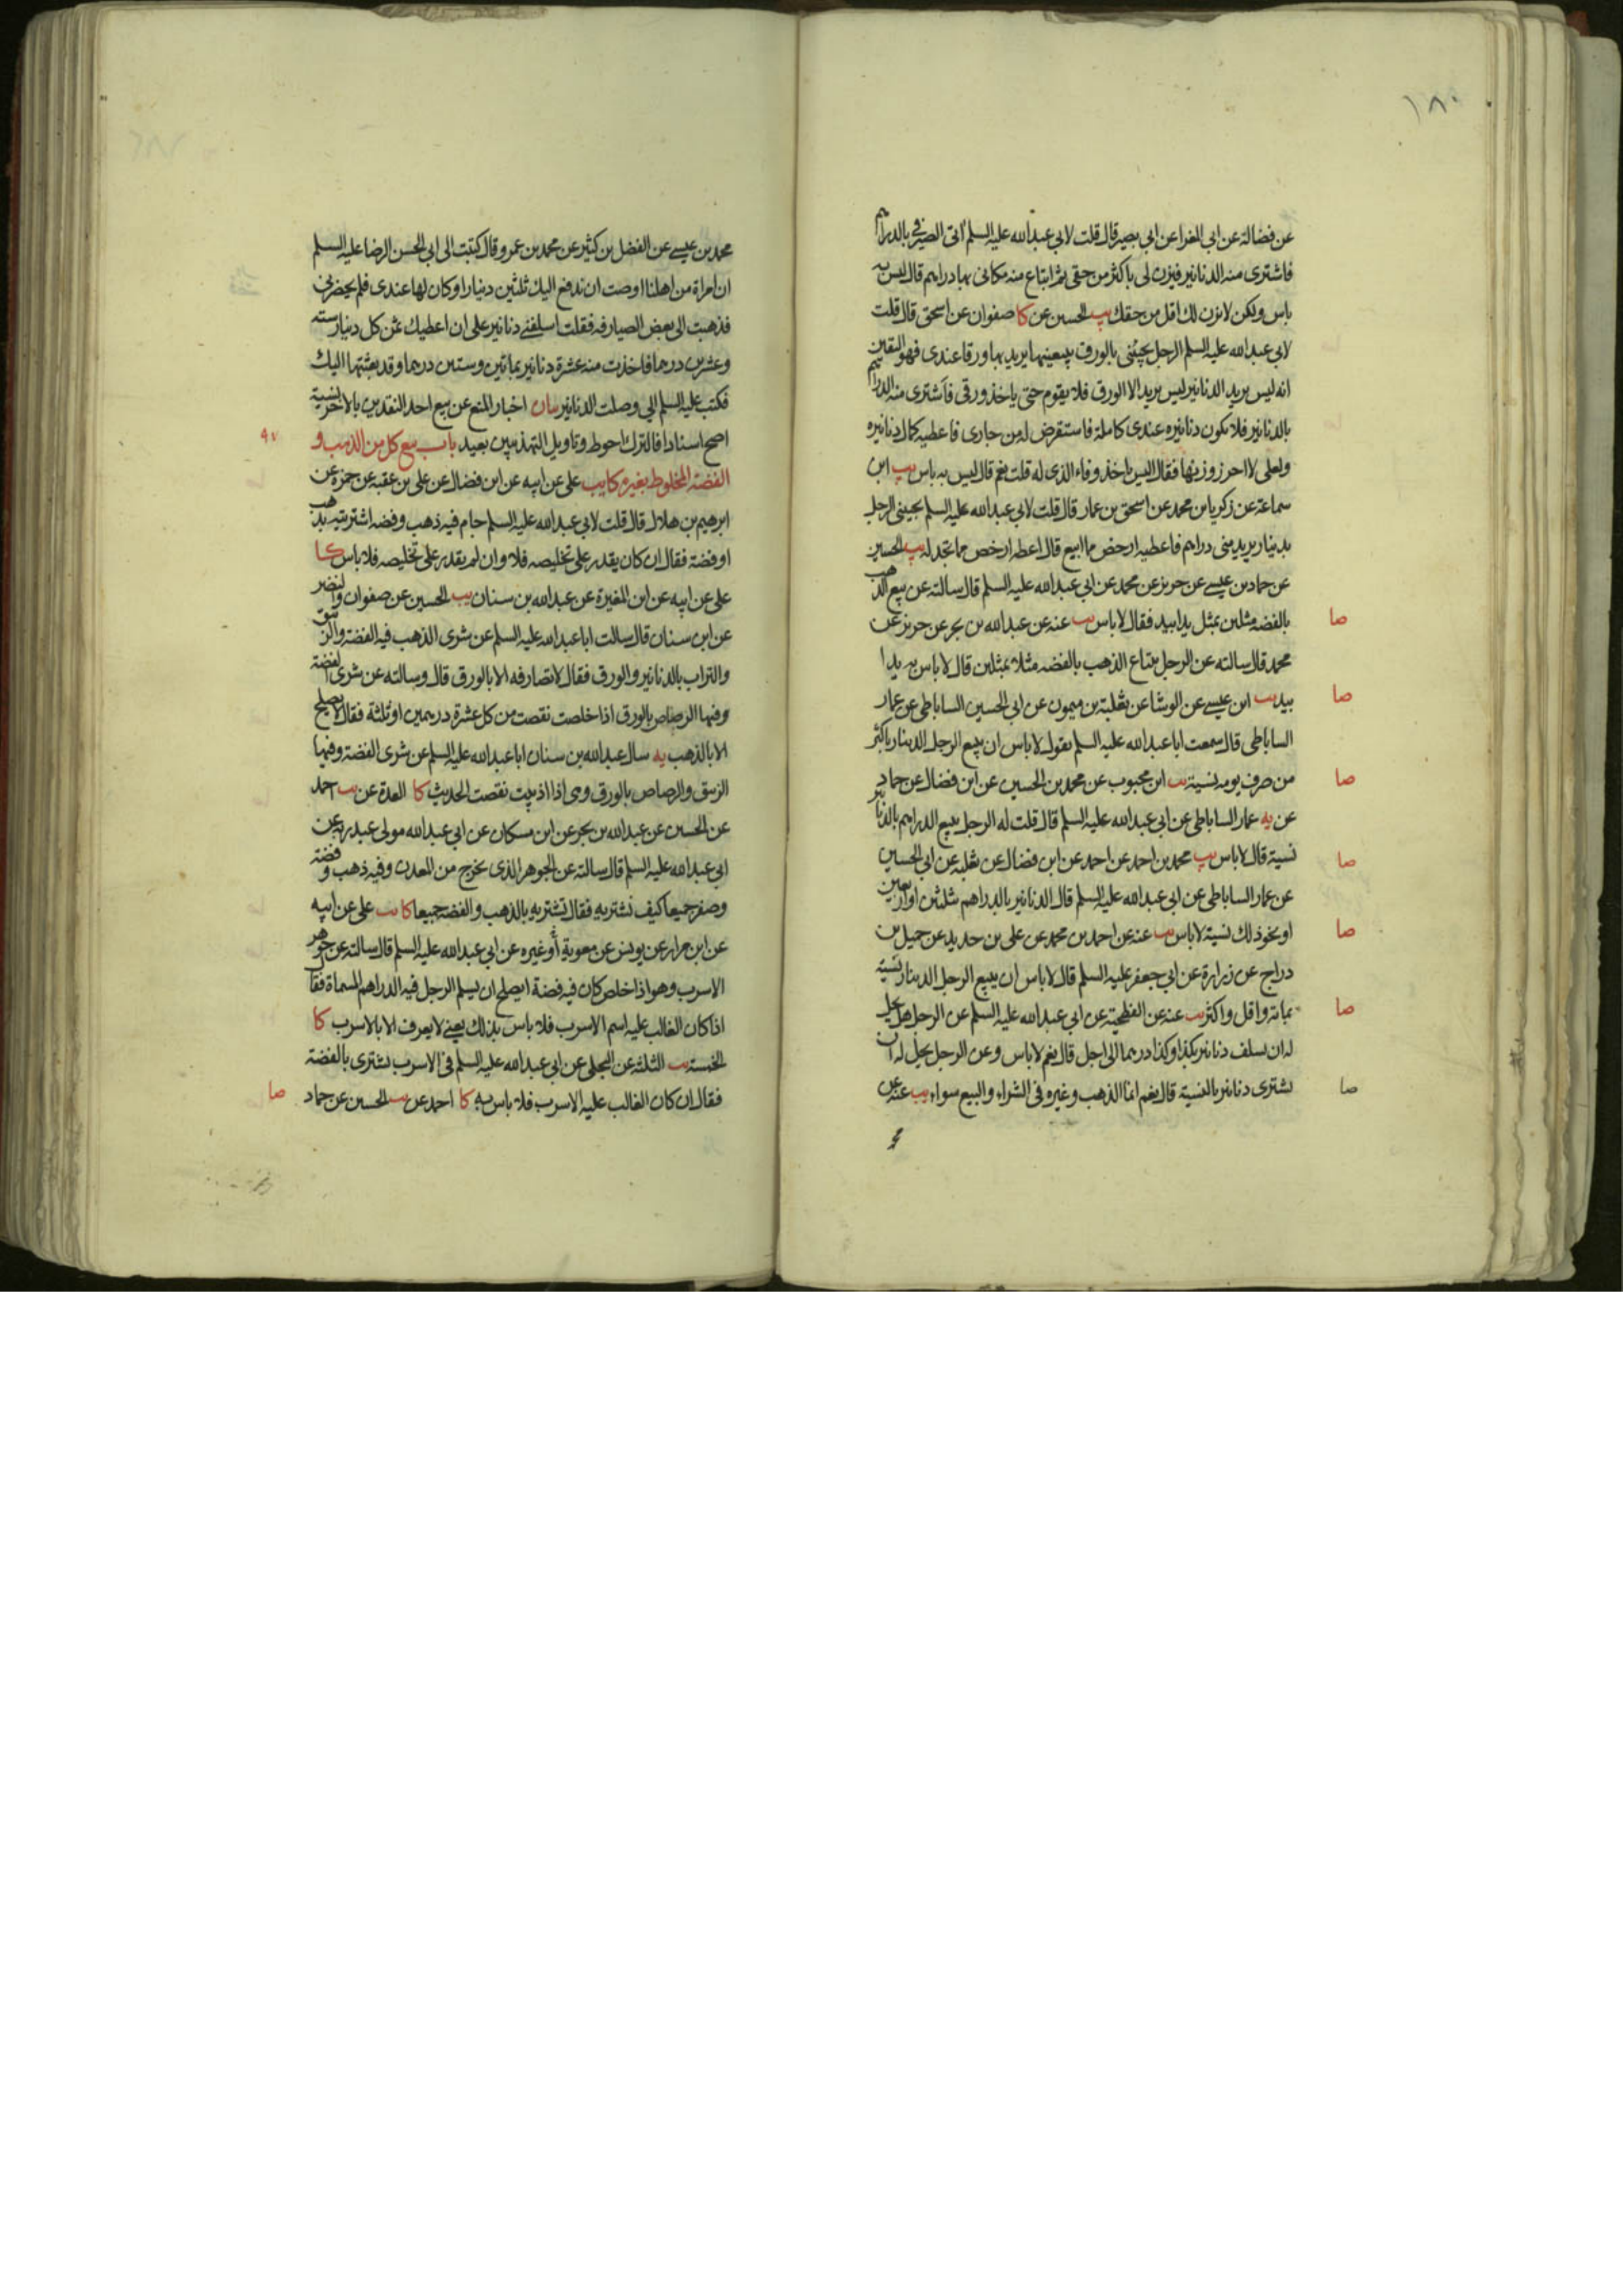 ١٨٠
عن فضالة عن ابي المغرا عن ابي بصير قال قلت لابي عبد الله عليه السلم اتى الصيرفي بالدراهم
فاشترى منه الدنانير فيزن لى باكثر من حقى ثم ابتاع منه مكانى بها دراهم قال ليس به
باس ولكن لا تزن لك اقل من حقك يب الحسين عن كا صفوان عن اسحق قال قلت
لابي عبد الله عليه السلم الرجل يجيئنى بالورق يبيعنيها يريد بها ورقا عندى فهو اليقين
انه ليس يريد الدنانير ليس يريد الا الورق فلا يقوم حتى ياخذ ورقى فاشترى منه الدراهم
بالدنانير فلا يكون دنانيره عندى كاملة فاستقرض له من جارى فاعطيه كمال دنانيره
ولعلى لا احرز وزنها فقال اليس ياخذ وفاء الذى له قلت نعم قال ليس به باس يب ابن
سماعة عن زكريا بن محمد عن اسحق بن عمار قال قلت لابي عبد الله عليه السلم يجيئنى الرجل
بدينار يريد منى دراهم فاعطيه ارخص مما ابيع قال اعطه ارخص مما تجد له يب الحسين
عن حماد بن عيسى عن حريز عن محمد عن ابي عبد الله عليه السلم قال سالته عن بيع الذهب
بالفضه مثلين بمثل يدا بيد فقال لا باس يب عنه عن عبد الله بن بحر عن حريز عن
صا
محمد قال سالته عن الرجل يبتاع الذهب بالفضه مثلا بمثلين قال لا باس به يدا
بيد يب ابن عيسى عن الوشا عن ثعلبة بن ميمون عن ابي الحسين الساباطى عن عمار
صا
الساباطى قال سمعت ابا عبد الله عليه السلم يقول لا باس ان يبيع الرجل الدينار باكثر
من صرف يومه نسية يب ابن محبوب عن محمد بن الحسين عن ابن فضال عن حماد
صا
عن يه عمار الساباطى عن ابي عبد الله عليه السلم قال قلت له الرجل يبيع الدراهم بالدنانير
نسية قال لا باس يب محمد بن احمد عن احمد عن ابن فضال عن ثعلبه عن ابي الحسين
صا
عن عمار الساباطى عن ابي عبد الله عليه السلم قال الدنانير بالدراهم بثلثين او اربعين
او نحو ذلك نسية لا باس يب عنه عن احمد بن محمد عن على بن حديد عن جميل بن
صا
دراج عن زرارة عن ابي جعفر عليه السلم قال لا باس ان يبيع الرجل الدينار نسية
بمائة واقل واكثر يب عنه عن الفطحية عن ابي عبد الله عليه السلم عن الرجل هل يحل
صا
له ان يسلف دنانير بكذا وكذا درهما الى اجل قال نعم لا باس وعن الرجل يحل له ان
يشترى دنانير بالنسية قال نعم انما الذهب وغيره فى الشراء والبيع سواء يب عنه عن
صا
محمد بن عيسى عن الفضل بن كثير عن محمد بن عمرو قال كتبت الى ابي الحسن الرضا عليه السلم
ان امراة من اهلنا اوصت ان ندفع اليك ثلثين دينارا وكان لها عندى فلم يحضرنى
فذهبت الى بعض الصيارفه فقلت اسلفنى دنانير على ان اعطيك ثمن كل دينار سته
وعشرين درهما فاخذت منه عشرة دنانير بماتين وستين درهما وقد بعثتها اليك
فكتب عليه السلم الي وصلت الدنانير بيان اخبار المنع عن بيع احد النقدين بالاخر نسية
اصح اسنادا فالترك احوط وتاويل التهذيبين بعيد باب بيع كل من الذهب و
٩٧
الفضة المخلوط بغيره كا يب على عن ابيه عن ابن فضال عن على بن عقبه عن حمزة عن
ابرهيم بن هلال قال قلت لابي عبد الله عليه السلم جام فيه ذهب وفضه اشتريته بذهب
او فضة فقال ان كان يقدر على تخليصه فلا وان لم يقدر على تخليصه فلا باس كا
على عن ابيه عن ابن المغيرة عن عبد الله بن سنان يب الحسين عن صفوان والنضر
عن ابن سنان قال سالت ابا عبد الله عليه السلم عن شرى الذهب فيه الفضه والزيبق
والتراب بالدنانير والورق فقال لا تصارفه الا بالورق قال وسالته عن شرى الفضة
وفيها الرصاص بالورق اذا خلصت نقصت من كل عشرة درهمين او ثلثة فقال لا يصلح
الا بالذهب يه سال عبد الله بن سنان ابا عبد الله عليه السلم عن شرى الفضة وفيها
الزيبق والرصاص بالورق وهى اذا اذيبت نقصت الحديث كا العدة عن يب احمد
عن الحسين عن عبد الله بن بحر عن ابن مسكان عن ابي عبد الله مولى عبد ربه عن
ابي عبد الله عليه السلم قال سالته عن الجوهر الذى يخرج من المعدن وفيه ذهب وفضة
وصفر جميعا كيف نشتريه فقال تشتريه بالذهب والفضه جميعا كا يب على عن ابيه
عن ابن مرار عن يونس عن معوية او غيره عن ابي عبد الله عليه السلم قال سالته عن جوهر
الاسرب وهو اذا خلص كان فيه فضة ايصلح ان يسلم الرجل فيه الدراهم المسماة فقال
اذا كان الغالب عليه اسم الاسرب فلا باس بذلك يعنى لا يعرف الا بالاسرب كا
الخمسة يب الثلثة عن البجلى عن ابي عبد الله عليه السلم فى الاسرب يشترى بالفضة
فقال ان كان الغالب عليه الاسرب فلا باس به كا احمد عن يب الحسين عن حماد
صا